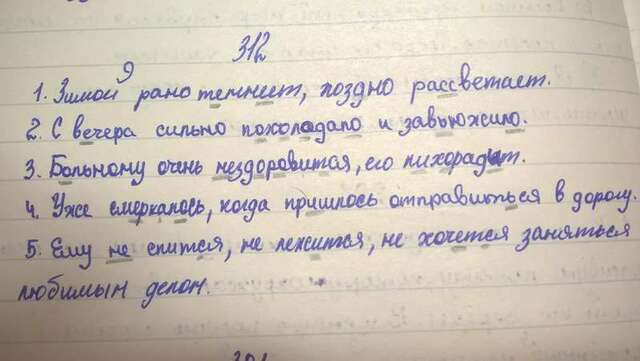 312
1. Зимой рано темнеет, поздно рассветает.
2. С вечера сильно похолодало и завьюжило.
3. Больному очень нездоровится, его лихорадит.
4. Уже смеркалось, когда пришлось отправиться в дорогу.
5. Ему не спится, не лежится, не хочется заняться
любимым делом.